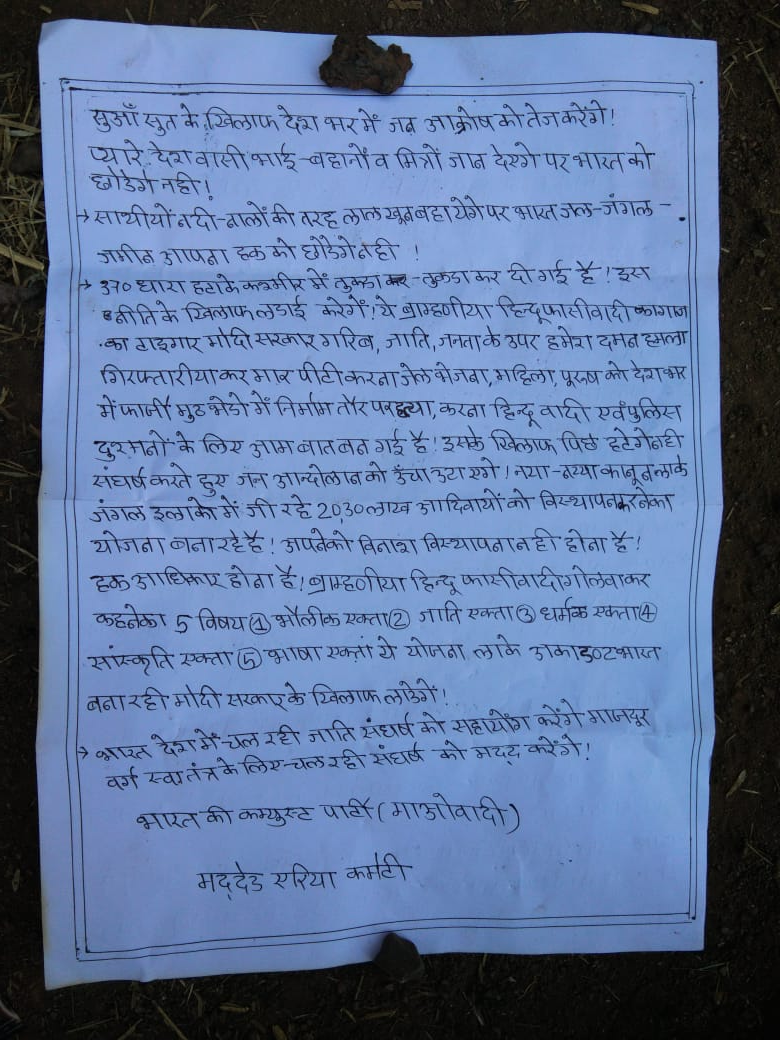 सुआँ सुत के खिलाफ देश भर में जन आक्रोष को तेज करेंगे!
प्यारे देश वासी भाई-बहानों व मित्रों जान देएगे पर भारत को
छोडेगे नही!
→ साथीयों नदी-नालों की तरह लाल खून बहायेगे पर भारत जल-जंगल-
जमीन आपना हक को छोडेगे नही !
→ 370 धारा हटाके कश्मीर में तुकडा कर-तुकडा कर दी गई है! इस
नीति के खिलाफ लडाई करेगें! ये ब्राम्हणीया हिन्दू फासीवादी कागाज
का टाइगार मोदी सरकार गरिब, जाति, जनता के उपर हमेशा दमन हमला
गिरफ्तारीया कर मार पीटी करना जेल भेजना, महिला, पूरुष को देश भर
में फार्जी मुठ भेडो में निर्मम तौर पर हत्या, करना हिन्दू वादी एवं पुलिस
दुश्मनों के लिए आम बात बन गई है! इसके खिलाफ पिछे हटेगे नही
संघर्ष करते हुए जन आन्दोलान को उँचा उटाएगे! नया-नया कानून लाके
जंगल इलाके में जी रहे 20,30 लाख आदिवायों को विस्थापन करनेका
योजना बना रहे है! आपनेको विनाश विस्थापना नही होना है!
हक आधिकार होना है! ब्राम्हणीया हिन्दू फासीवादी गोलवाकर
कहनेका 5 विषय ① भौलीक एक्ता ② जाति एक्ता ③ धर्मक एक्ता ④
सांस्कृति एक्ता ⑤ भाषा एक्ता ये योजना लाके अकाडण्ट भारत
बना रही मोदी सरकार के खिलाफ लडेगे!
→ भारत देश में चल रही जाति संघर्ष को सहायोग करेंगे माजदूर
वर्ग स्वातंत्र के लिए चल रही संघर्ष को मदद् करेंगे!
भारत की कम्युस्ट पार्टी (माओवादी)
मद्देड एरिया कमेटी